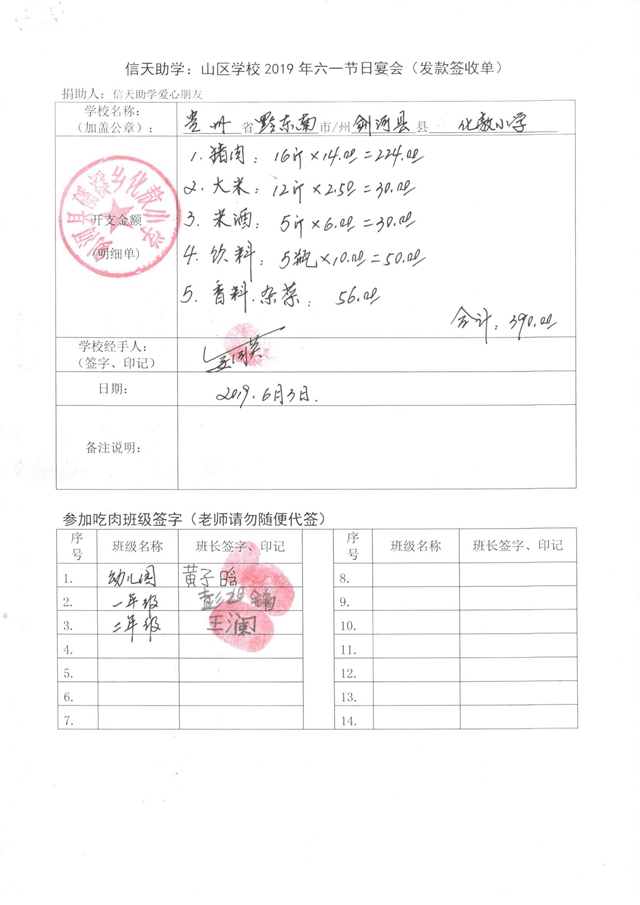 信天助学：山区学校2019年六一节日宴会（发款签收单）
捐助人：信天助学爱心朋友
学校名称：
（加盖公章）：
贵州省黔东南市/州剑河县县 化敖小学
开支金额
(明细单)
1.猪肉：16斤×14.00=224.00
2.大米：12斤×2.50=30.00
3.米酒：5斤×6.00=30.00
4.饮料：5瓶×10.00=50.00
5.香料.杂菜：56.00
合计：390.00
学校经手人：
（签字、印记）
日期：
2019.6月3日.
备注说明：
参加吃肉班级签字（老师请勿随便代签）
序号 班级名称 班长签字、印记 序号 班级名称 班长签字、印记
1. 幼儿园 黄子晗 8.
2. 一年级 9.
3. 二年级 王澜 10.
4. 11.
5. 12.
6. 13.
7. 14.